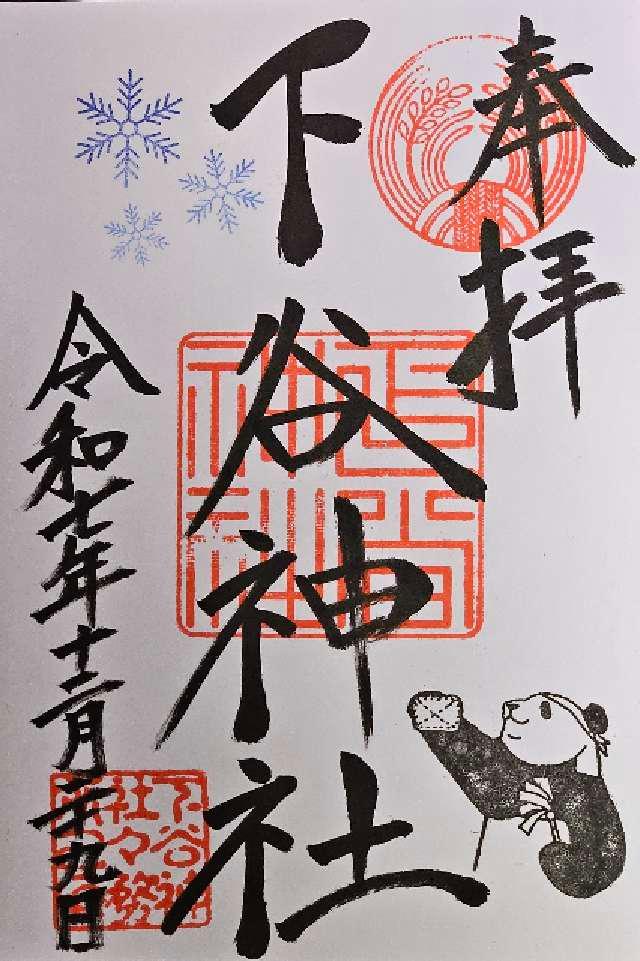 奉拝
下谷神社
令和七年十二月二十九日
下谷神
社々務